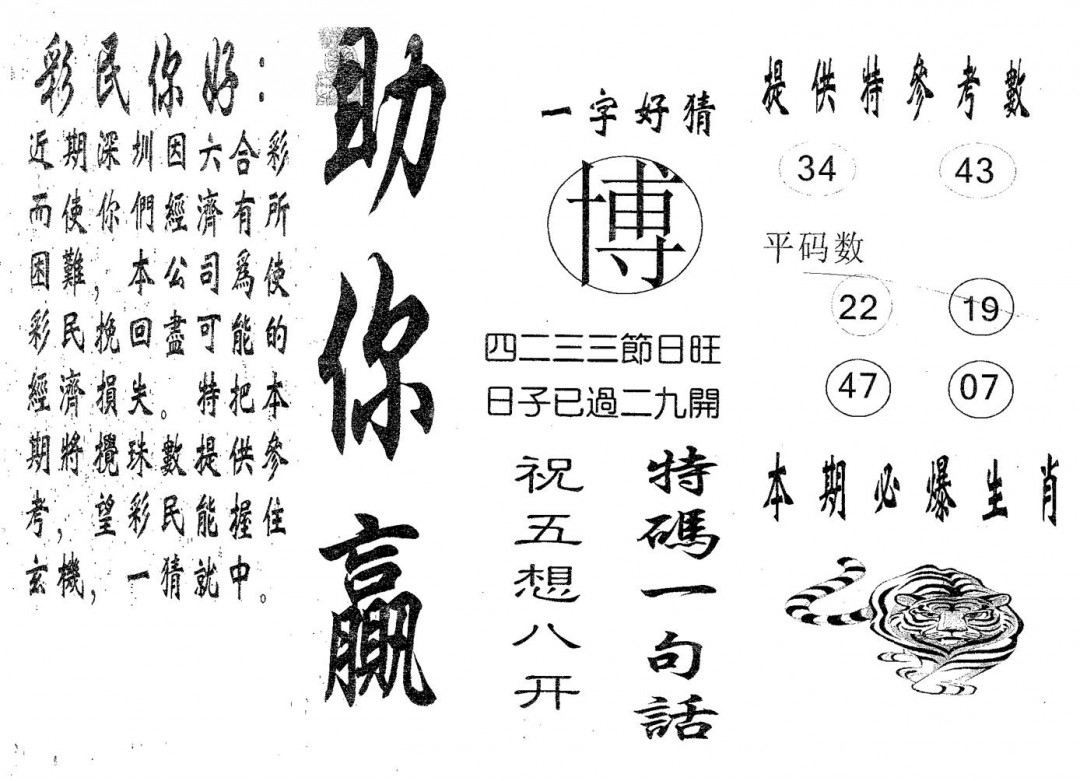 彩民你好：
近期深圳因六合彩
而使你們經濟有所
困難，本公司爲使
彩民挽回盡可能的
經濟損失。特把本
期將攪珠數提供參
考，望彩民能握住
玄機，一猜就中。
助你贏
一字好猜
博
四二三三節日旺
日子已過二九開
特碼一句話
祝五想八开
提供特參考數
34 43
平码数
22 19
47 07
本期必爆生肖